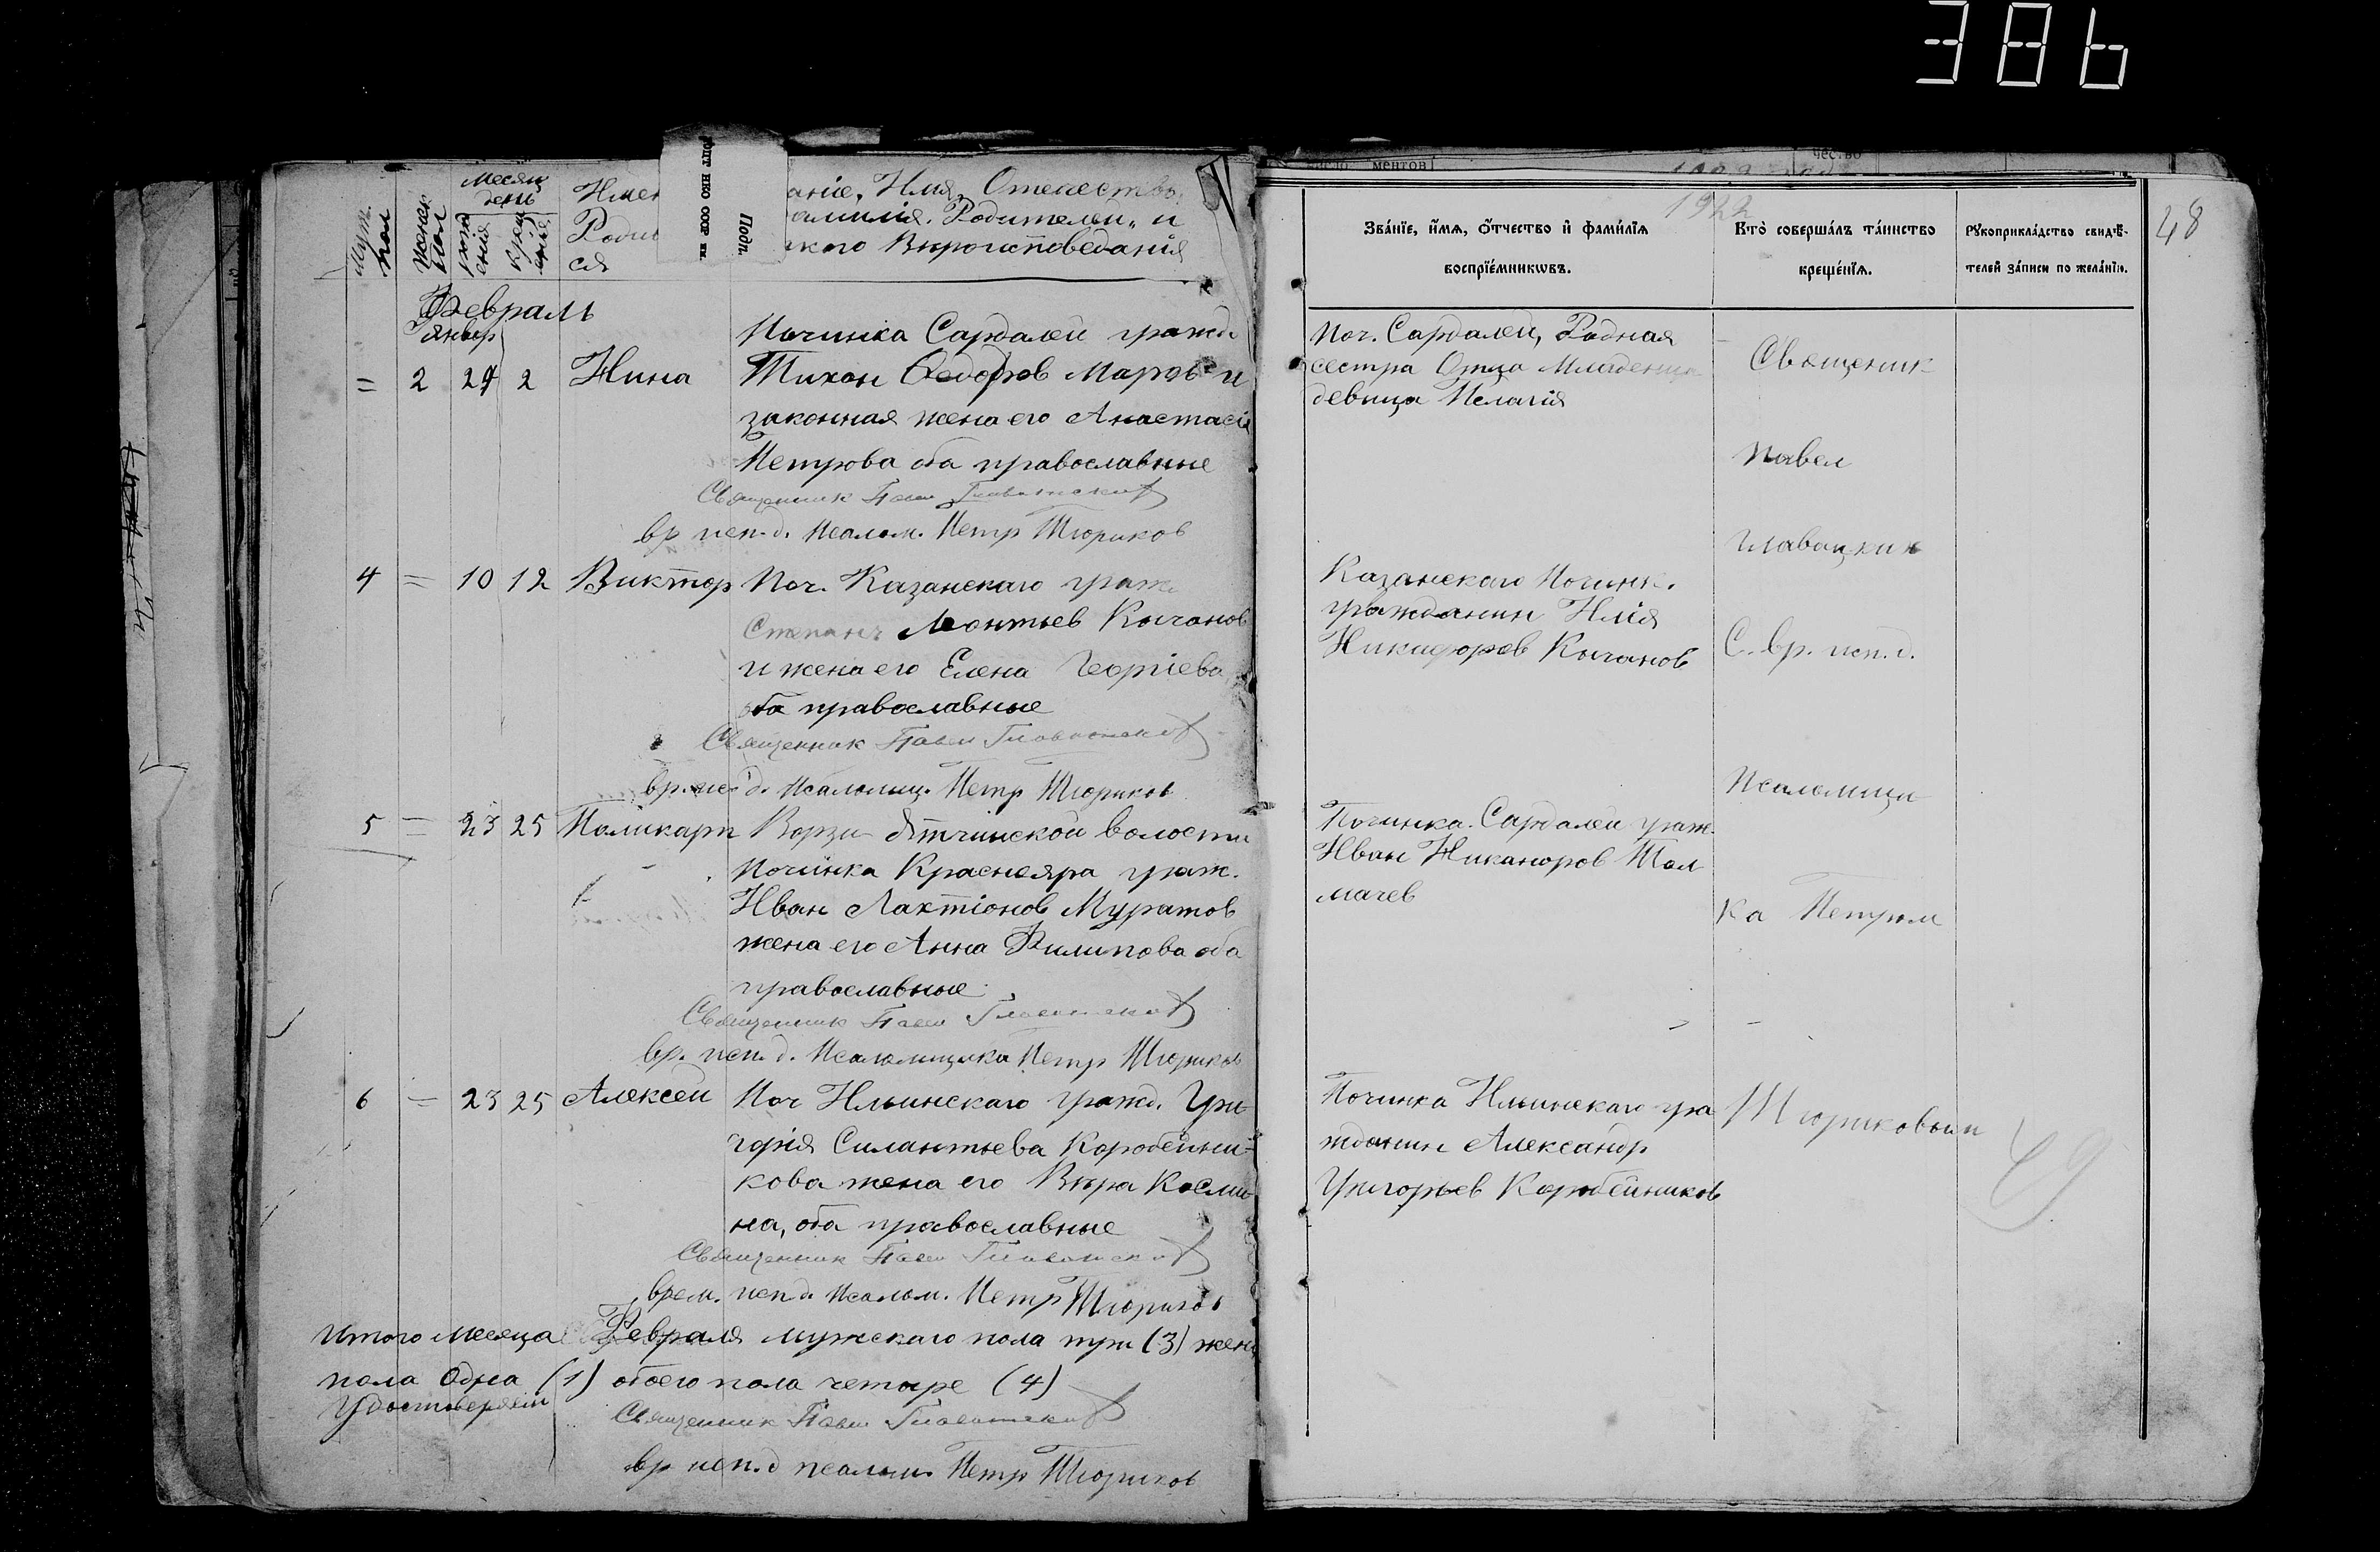 386
Мужс. пол
Женск пол
Месяц день
рожд ения
крещ ения
Имен
Родив
ся
ание, Имя, Отчество,
амилия. Родителей, и
кого Вѣроисповедания
НКО СССР
Подп.
Февраль
январ
= 2 29 2 Нина
Починка Сардалей гражд.
Тихон Федоров Маров и
законная жена его Анастасiя
Петрова оба православные
Священник Павел Главатских
вр исп. д. Псалом. Петр Тюриков
4 = 10 12 Виктор Поч. Казанскаго граж.
Степанъ Леонтьев Кычанов
и жена его Елена Георгiева
оба православные
Священник Павел Главатских
вр. исп. д. Псаломщ. Петр Тюриков
5 = 23 25 Поликарп Ворзи-Ятчинской волости
Починка Краснояра граж.
Иван Лактiонов Муратов
жена его Анна Филипова оба
православные
Священник Павел Главатских
вр. исп. д. Псаломщика Петр Тюриков
6 = 23 25 Алексей Поч Ильинскаго гражд. Гри
горiя Силантьева Коробейни-
кова жена его Вѣра Косми
на, оба православные
Священник Павел Главатских
врем. исп. д. Псалом. Петр Тюриков
Итого месяца Февраля мужскаго пола три (3) женс
пола одна (1) обоего пола четыре (4)
Удостоверяем
Священник Павел Главатских
вр исп. д псалом. Петр Тюриков
ментов
чество
1922
48
Зва́нїе, и҆́мѧ, ѻ҆́тчество и҆ фами́лїѧ
воспрїе́мникѡвъ.
Кто̀ соверша́лъ та́инство
креще́нїѧ.
Рꙋкоприкла́дство свидѣ́-
телей за́писи по жела́нїю.
Поч. Сардалей, Родная
сестра Отца Младенца
девица Пелагiя
Священик
Павел
Главацких
Казанскаго Починк.
гражданин Илiя
Никифоров Кычанов
С. вр. исп. д.
Псаломщи
Починка. Сардалей граж.
Иван Никаноров Тол
мачев
ка Петром
Починка Ильинскаго гра
жданин Александр
Григорьев Коробейников
Тюриковым
49